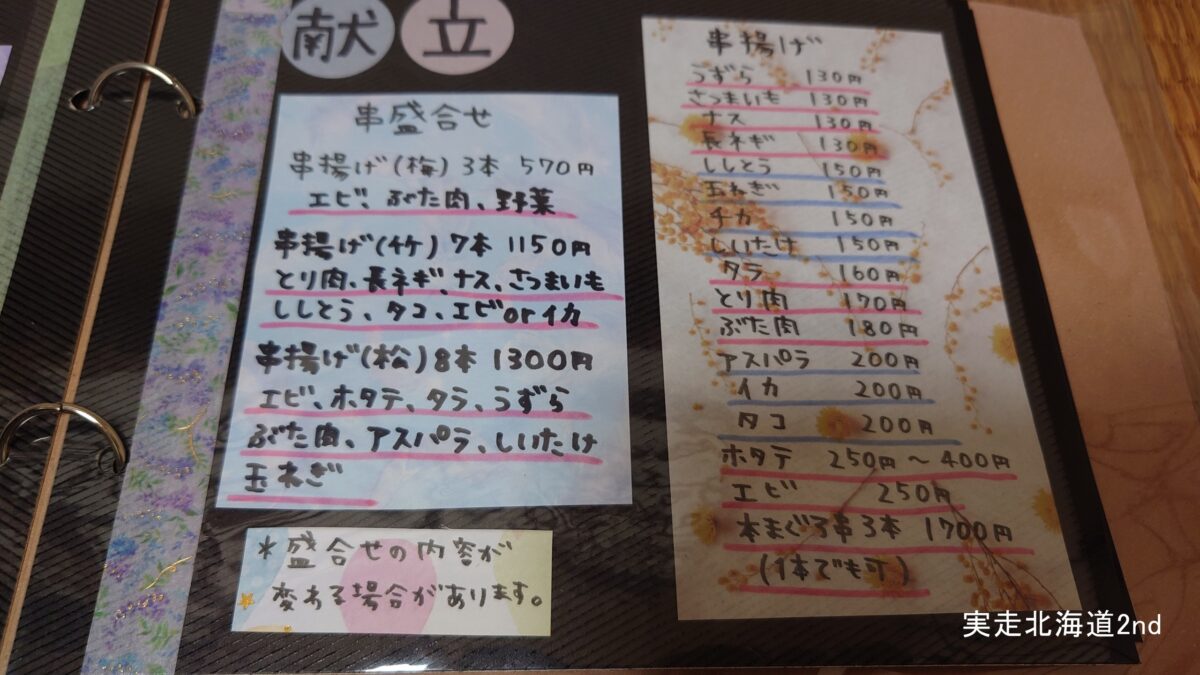 献立
串盛合せ
串揚げ(梅)3本 570円
エビ、ぶた肉、野菜
串揚げ(竹)7本 1150円
とり肉、長ネギ、ナス、さつまいも
ししとう、タコ、エビorイカ
串揚げ(松)8本 1300円
エビ、ホタテ、タラ、うずら
ぶた肉、アスパラ、しいたけ
玉ねぎ
*盛合せの内容が
変わる場合があります。
串揚げ
うずら 130円
さつまいも 130円
ナス 130円
長ネギ 130円
ししとう 150円
玉ねぎ 150円
チカ 150円
しいたけ 150円
タラ 160円
とり肉 170円
ぶた肉 180円
アスパラ 200円
イカ 200円
タコ 200円
ホタテ 250円~400円
エビ 250円
本まぐろ串3本 1700円
(1本でも可)
実走北海道2nd